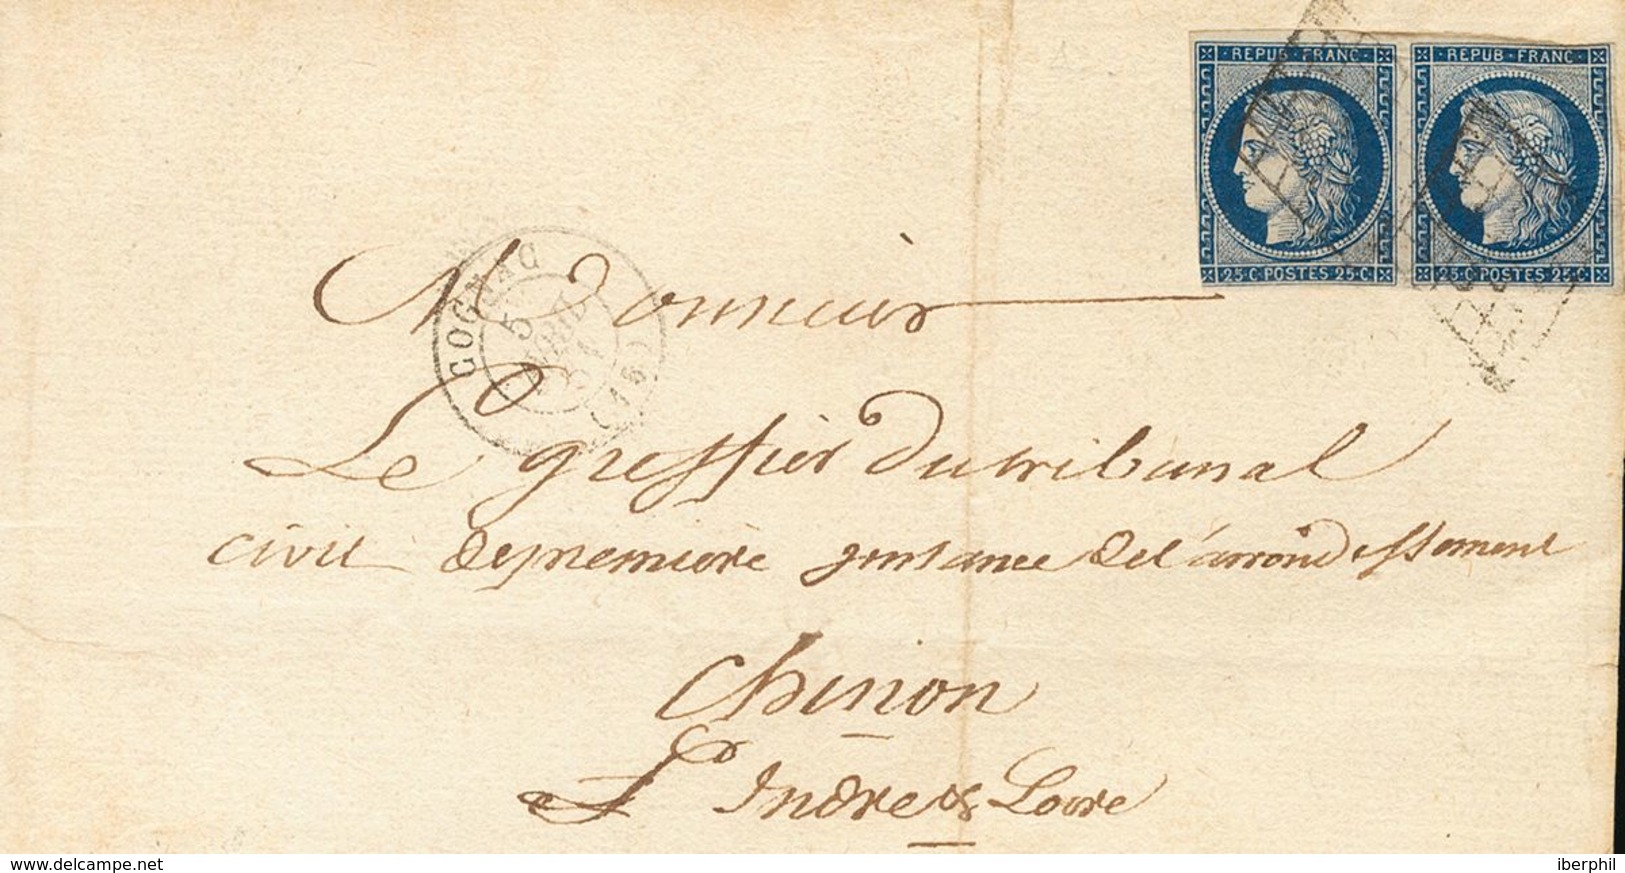 REPUB·FRANC
REPUB·FRANC
25·C POSTES 25·C
25·C POSTES 25·C
COGNAC
5
AVRIL
51
(15)
Monsieur
Le greffier du tribunal
civil de premiere instance de l'arrondissement
Chinon
Indre & Loire
www.delcampe.net
iberphil